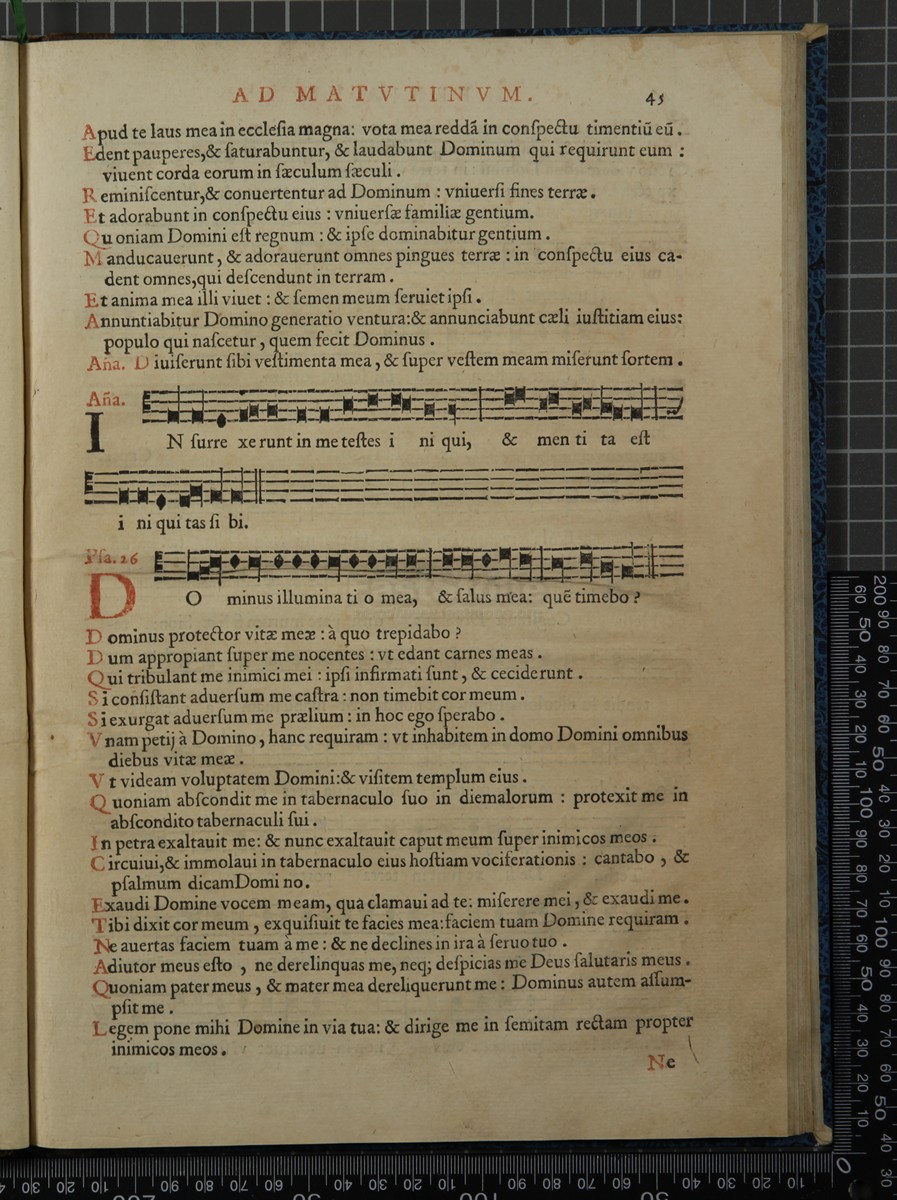 AD MATVTINVM. 45
Apud te laus mea in eccleſia magna: vota mea reddā in conſpectu timentiū eū.
Edent pauperes,& ſaturabuntur, & laudabunt Dominum qui requirunt eum :
viuent corda eorum in ſæculum ſæculi.
Reminiſcentur,& conuertentur ad Dominum : vniuerſi fines terræ.
Et adorabunt in conſpectu eius : vniuerſæ familiæ gentium.
Quoniam Domini eſt regnum : & ipſe dominabitur gentium.
Manducauerunt, & adorauerunt omnes pingues terræ : in conſpectu eius ca-
dent omnes,qui deſcendunt in terram.
Et anima mea illi viuet : & ſemen meum ſeruiet ipſi.
Annuntiabitur Domino generatio ventura:& annunciabunt cæli iuſtitiam eius:
populo qui naſcetur, quem fecit Dominus.
Aña. Diuiſerunt ſibi veſtimenta mea, & ſuper veſtem meam miſerunt ſortem.
Aña.
IN ſurre xe runt in me teſtes i ni qui, & men ti ta eſt
i ni qui tas ſi bi.
Pſa. 26
DO minus illumina ti o mea, & ſalus mea: quē timebo ?
Dominus protector vitæ meæ : à quo trepidabo ?
Dum appropiant ſuper me nocentes : vt edant carnes meas.
Qui tribulant me inimici mei : ipſi infirmati ſunt, & ceciderunt.
Si conſiſtant aduerſum me caſtra : non timebit cor meum.
Si exurgat aduerſum me prælium : in hoc ego ſperabo.
Vnam petij à Domino, hanc requiram : vt inhabitem in domo Domini omnibus
diebus vitæ meæ.
Vt videam voluptatem Domini:& viſitem templum eius.
Quoniam abſcondit me in tabernaculo ſuo in die malorum : protexit me in
abſcondito tabernaculi ſui.
In petra exaltauit me: & nunc exaltauit caput meum ſuper inimicos meos.
Circuiui,& immolaui in tabernaculo eius hoſtiam vociferationis : cantabo, &
pſalmum dicam Domi no.
Exaudi Domine vocem meam, qua clamaui ad te: miſerere mei, & exaudi me.
Tibi dixit cor meum, exquiſiuit te facies mea:faciem tuam Domine requiram.
Ne auertas faciem tuam à me : & ne declines in ira à ſeruo tuo.
Adiutor meus eſto, ne derelinquas me, neq; deſpicias me Deus ſalutaris meus.
Quoniam pater meus, & mater mea dereliquerunt me : Dominus autem aſſum-
pſit me.
Legem pone mihi Domine in via tua: & dirige me in ſemitam rectam propter
inimicos meos.
Ne